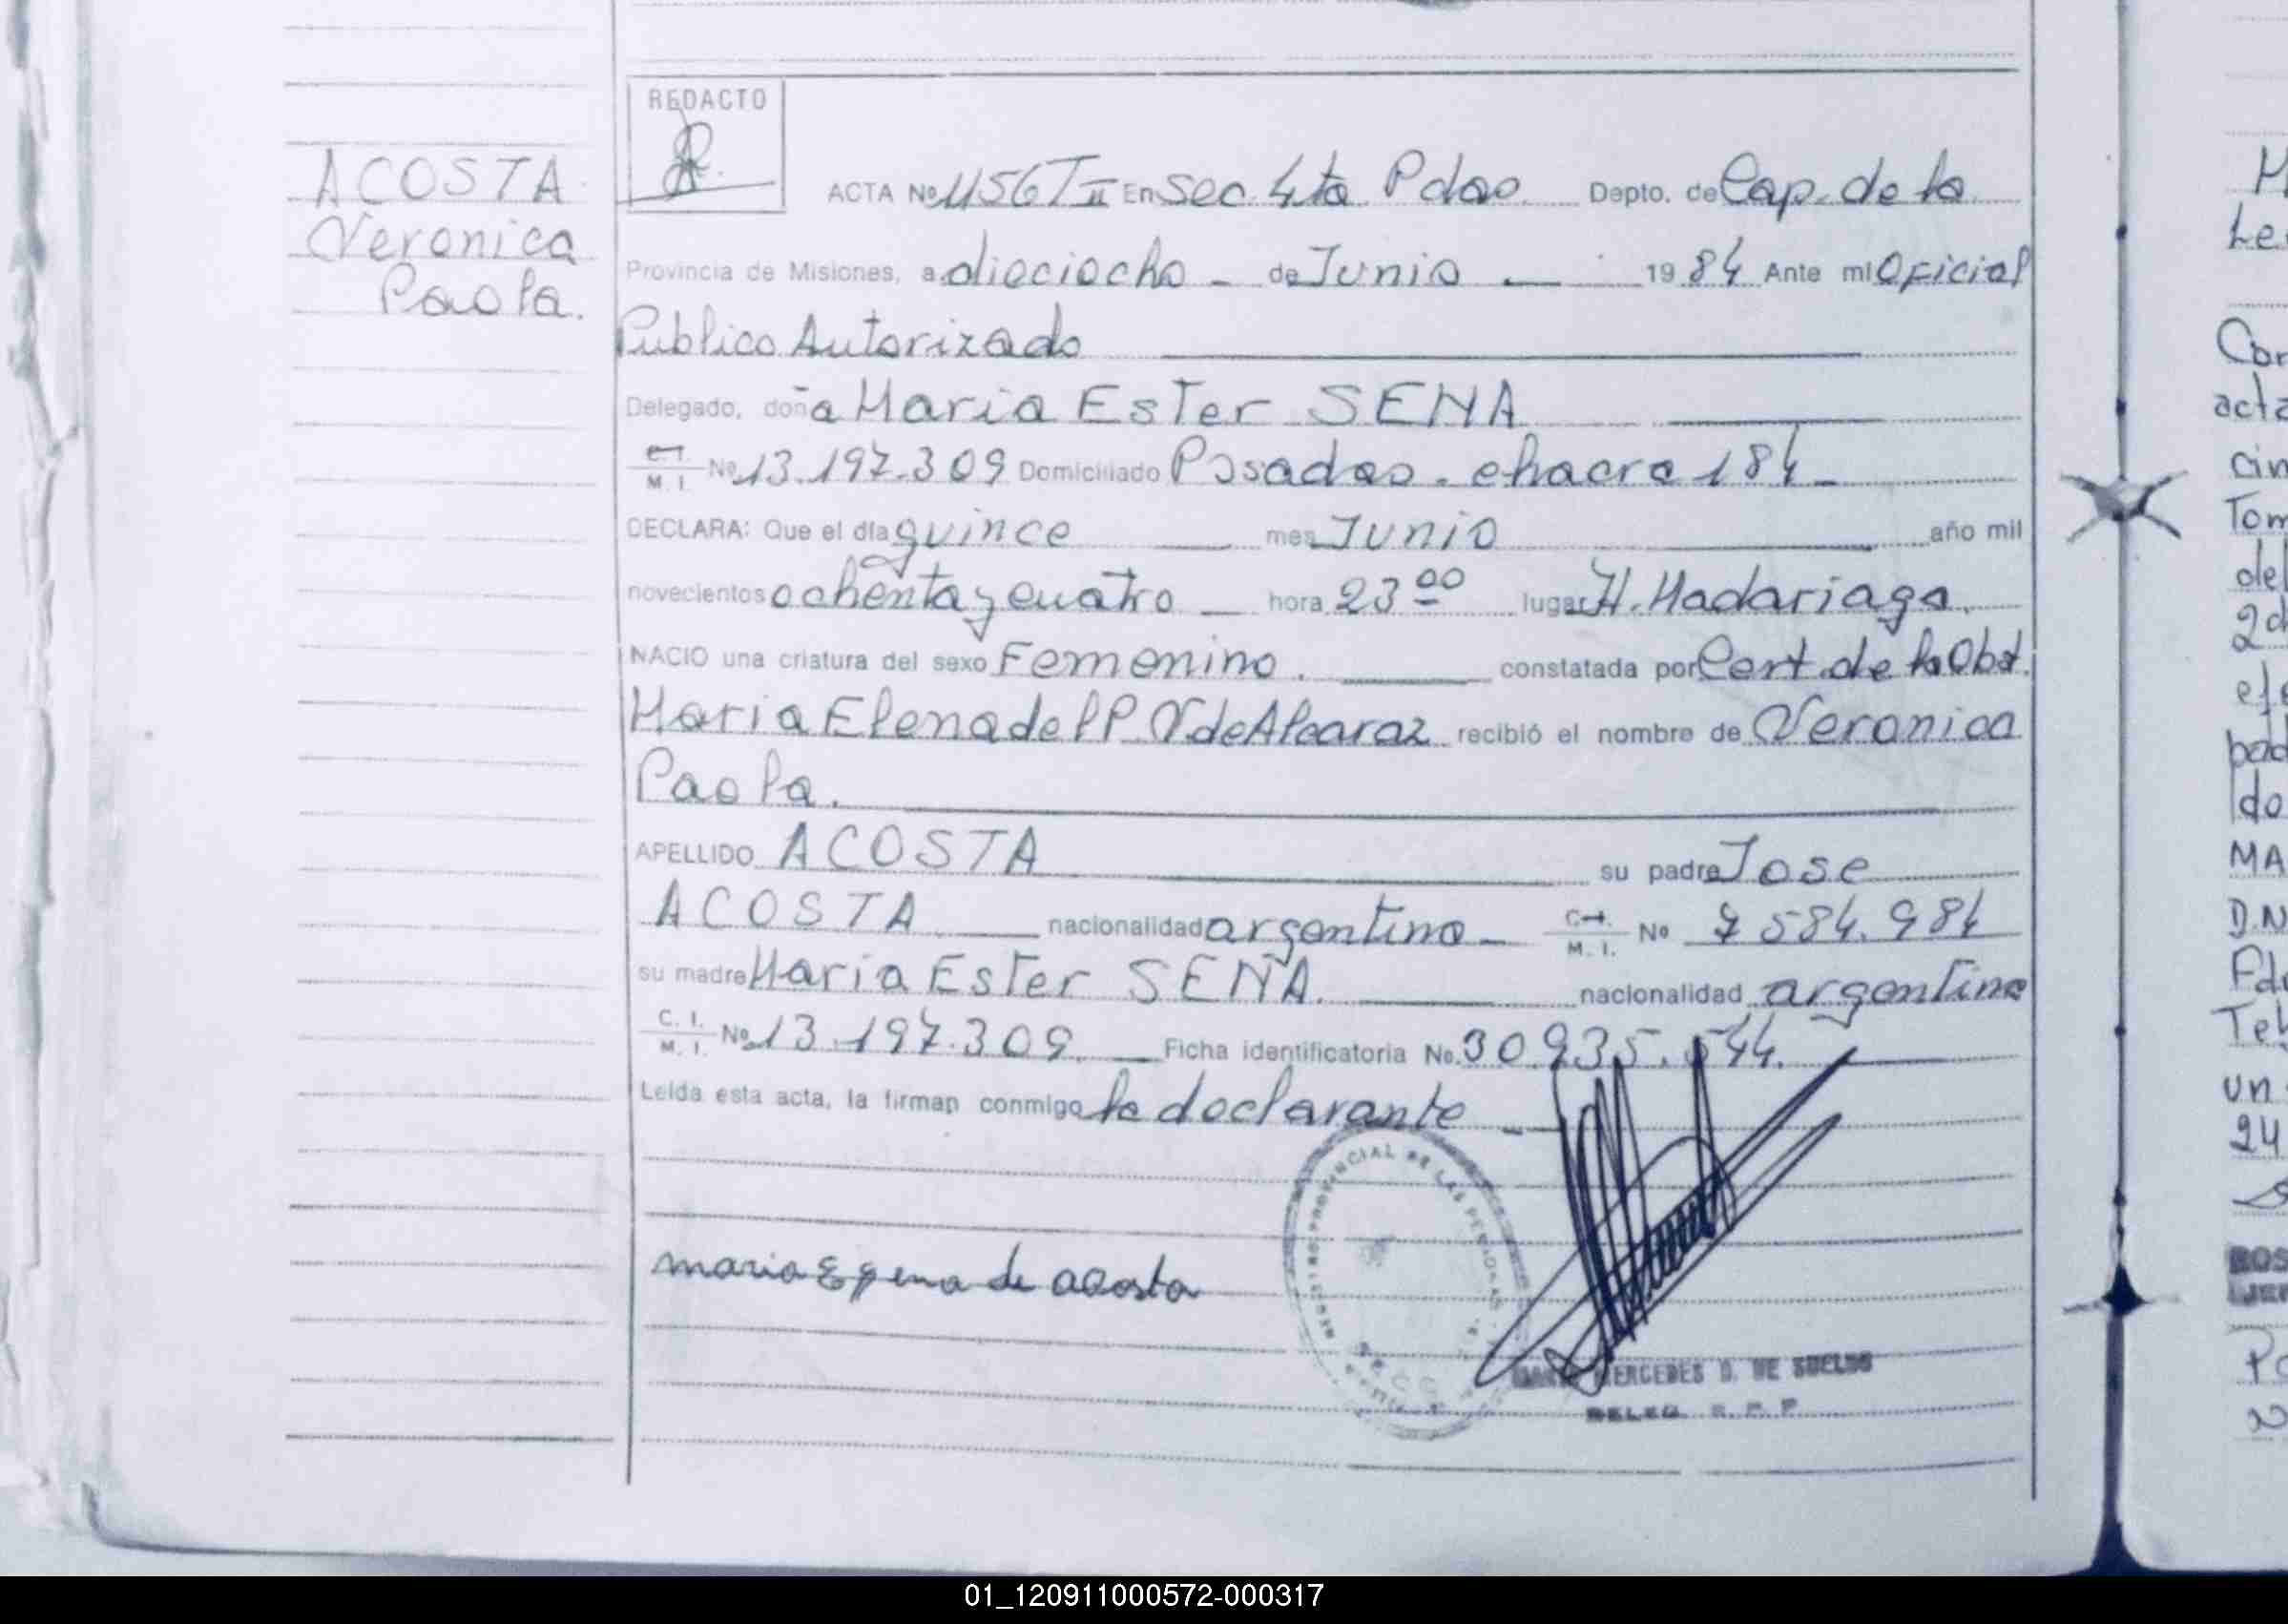 REDACTO
ACOSTA
Veronica
Paola.
ACTA Nº 1156 T II En Sec. 4ta Pdas. Depto. de Cap. de la
Provincia de Misiones, a dieciocho - de Junio — 19 84 Ante mí Oficial
Publico Autorizado
Delegado, doña Maria Ester SENA
C.I. M. I. Nº 13.197.309 Domiciliado Posadas. chacra 184 -
DECLARA: Que el día quince mes Junio año mil
novecientos ochenta y cuatro — hora 23 00 lugar H. Madariaga.
NACIO una criatura del sexo Femenino. constatada por Cert. de la Obst.
Maria Elena del P. V. de Alcaraz recibió el nombre de Veronica
Paola.
APELLIDO ACOSTA su padre Jose
ACOSTA. nacionalidad argentino - C.I. M. I. Nº 7584.984
su madre Maria Ester SENA. nacionalidad argentina
C. I. M. I. Nº 13.197.309. Ficha identificatoria No. 30.935.544.
Leída esta acta, la firman conmigo la declarante —
REGISTRO PROVINCIAL DE LAS PERSONAS
maria E sena de acosta
MERCEDES D. DE SUELDO
DELEG. R. P. P.
Cor
acta
cin
Tom
del
2d
bad
do
MA
D.N
Edu
un
24
ROS
JEF
01_120911000572-000317